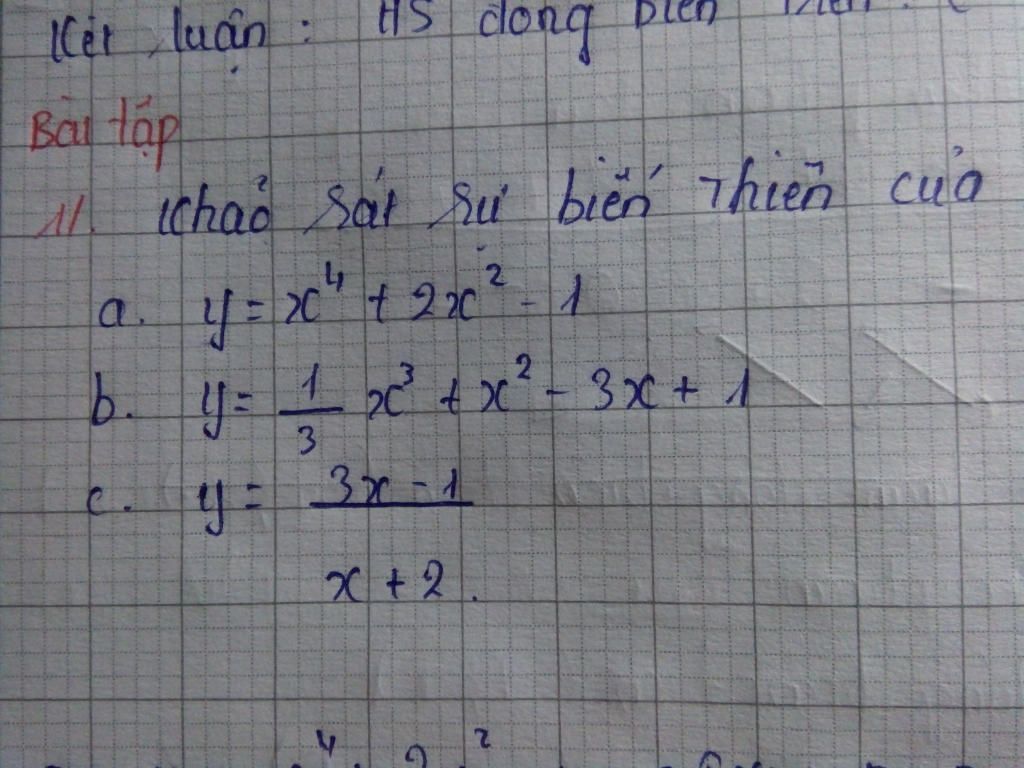 Kết luận: HS đồng biến trên
Bài tập
1/. Khảo sát sự biến thiên của
a. y = x⁴ + 2x² - 1
b. y = 1/3 x³ + x² - 3x + 1
c. y = (3x - 1)/(x + 2).